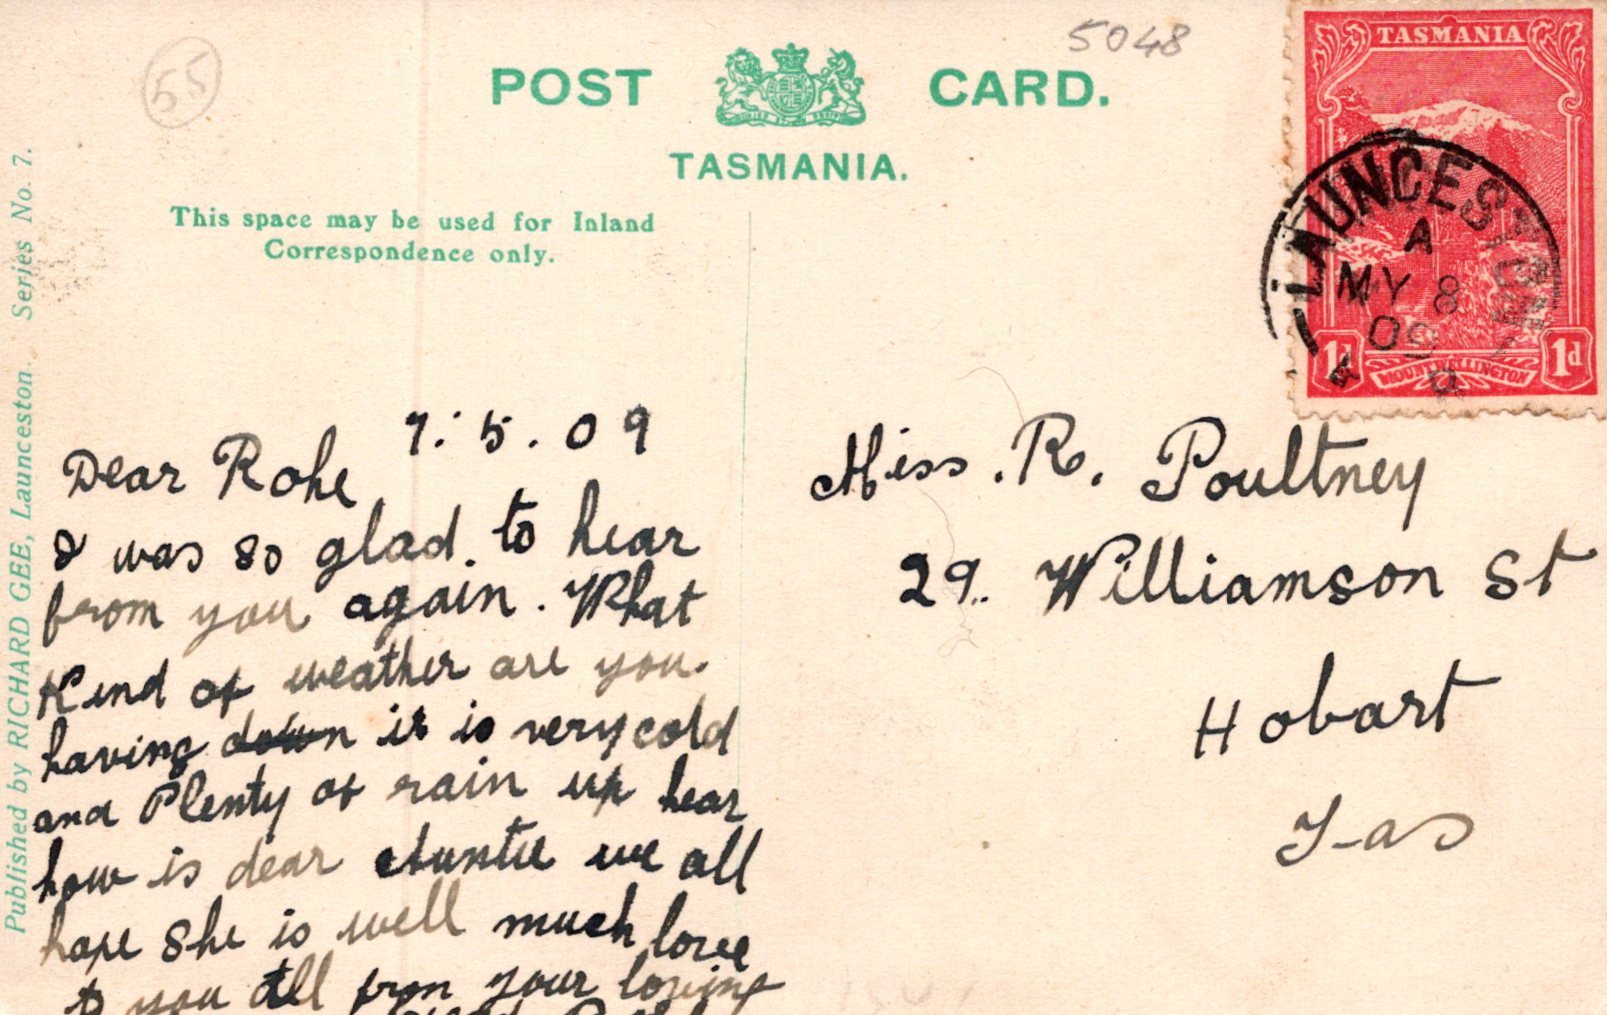 5048
55
POST CARD.
TASMANIA.
This space may be used for Inland
Correspondence only.
Published by RICHARD GEE, Launceston. Series No. 7.
TASMANIA
1d 1d
MOUNT WELLINGTON
LAUNCESTON
A
MY 8
09
7.5.09
Dear Rohe
I was so glad to hear
from you again. What
Kind of weather are you.
having down it is very cold
and Plenty of rain up hear
how is dear Auntie we all
hope She is well much love
to you all from your loving
Miss. R. Poultney
29. Williamson St
Hobart
Tas